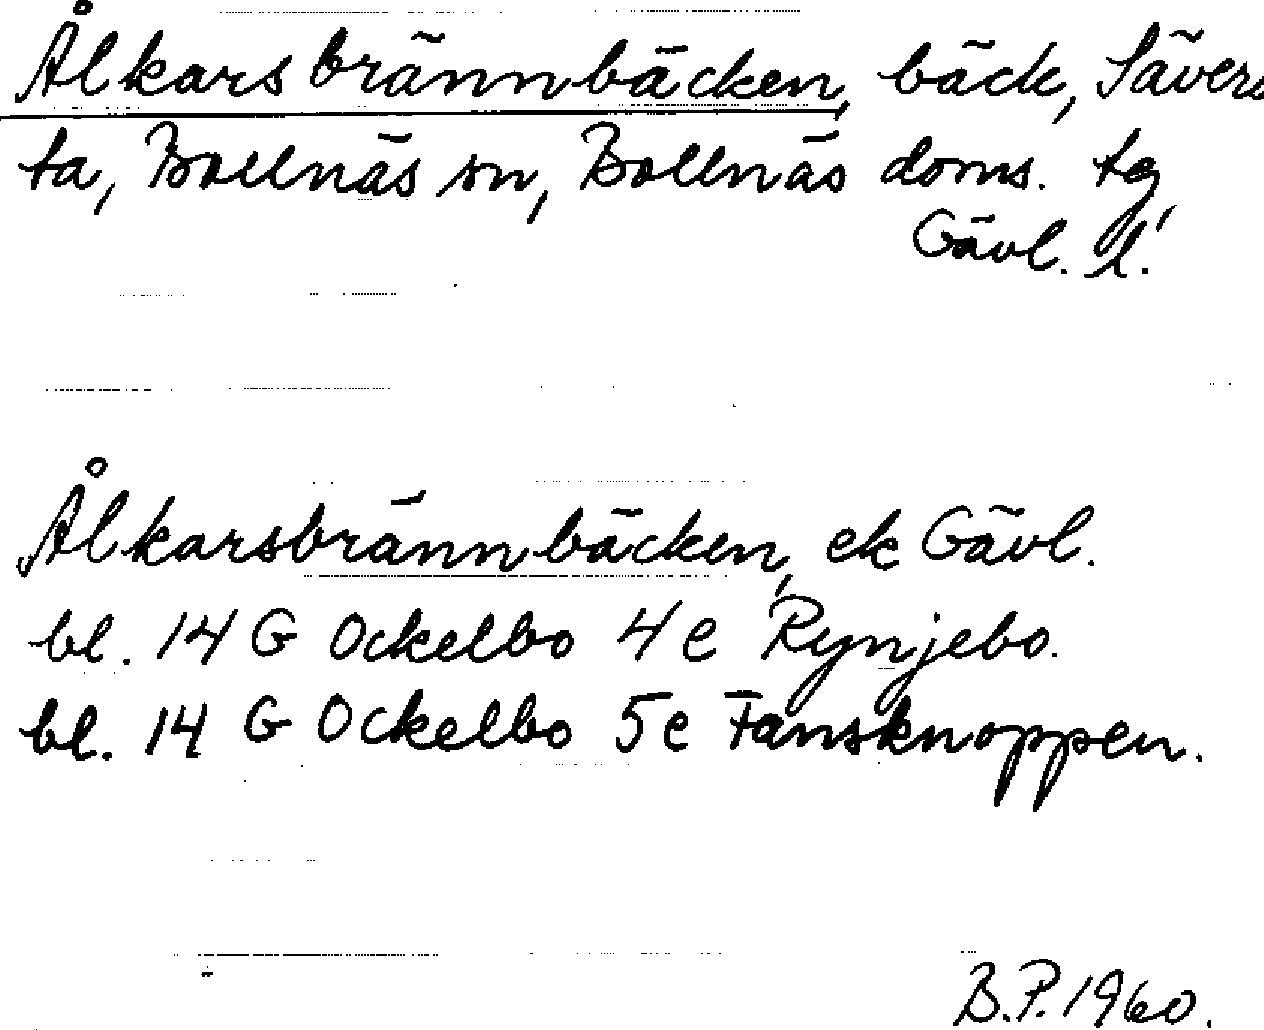 Ålkarsbrännbäcken, bäck, Sävers
ta, Bollnäs sn, Bollnäs doms. tg
Gävl. l.
Ålkarsbrännbäcken, ek Gävl.
bl. 14 G Ockelbo 4e Rynjebo.
bl. 14 G Ockelbo 5e Fansknoppen.
B.P. 1960.